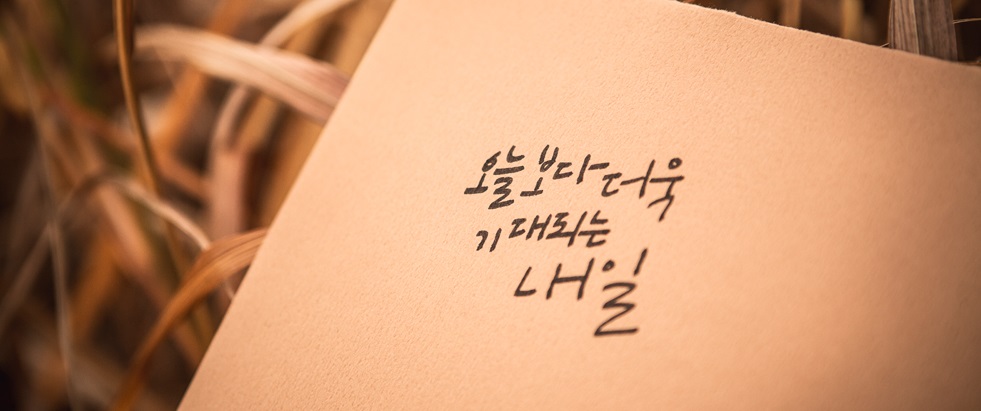 오늘보다 더욱
기대되는
내일